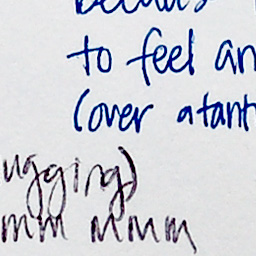 to feel an
(over atant
ugging)
mm mmm